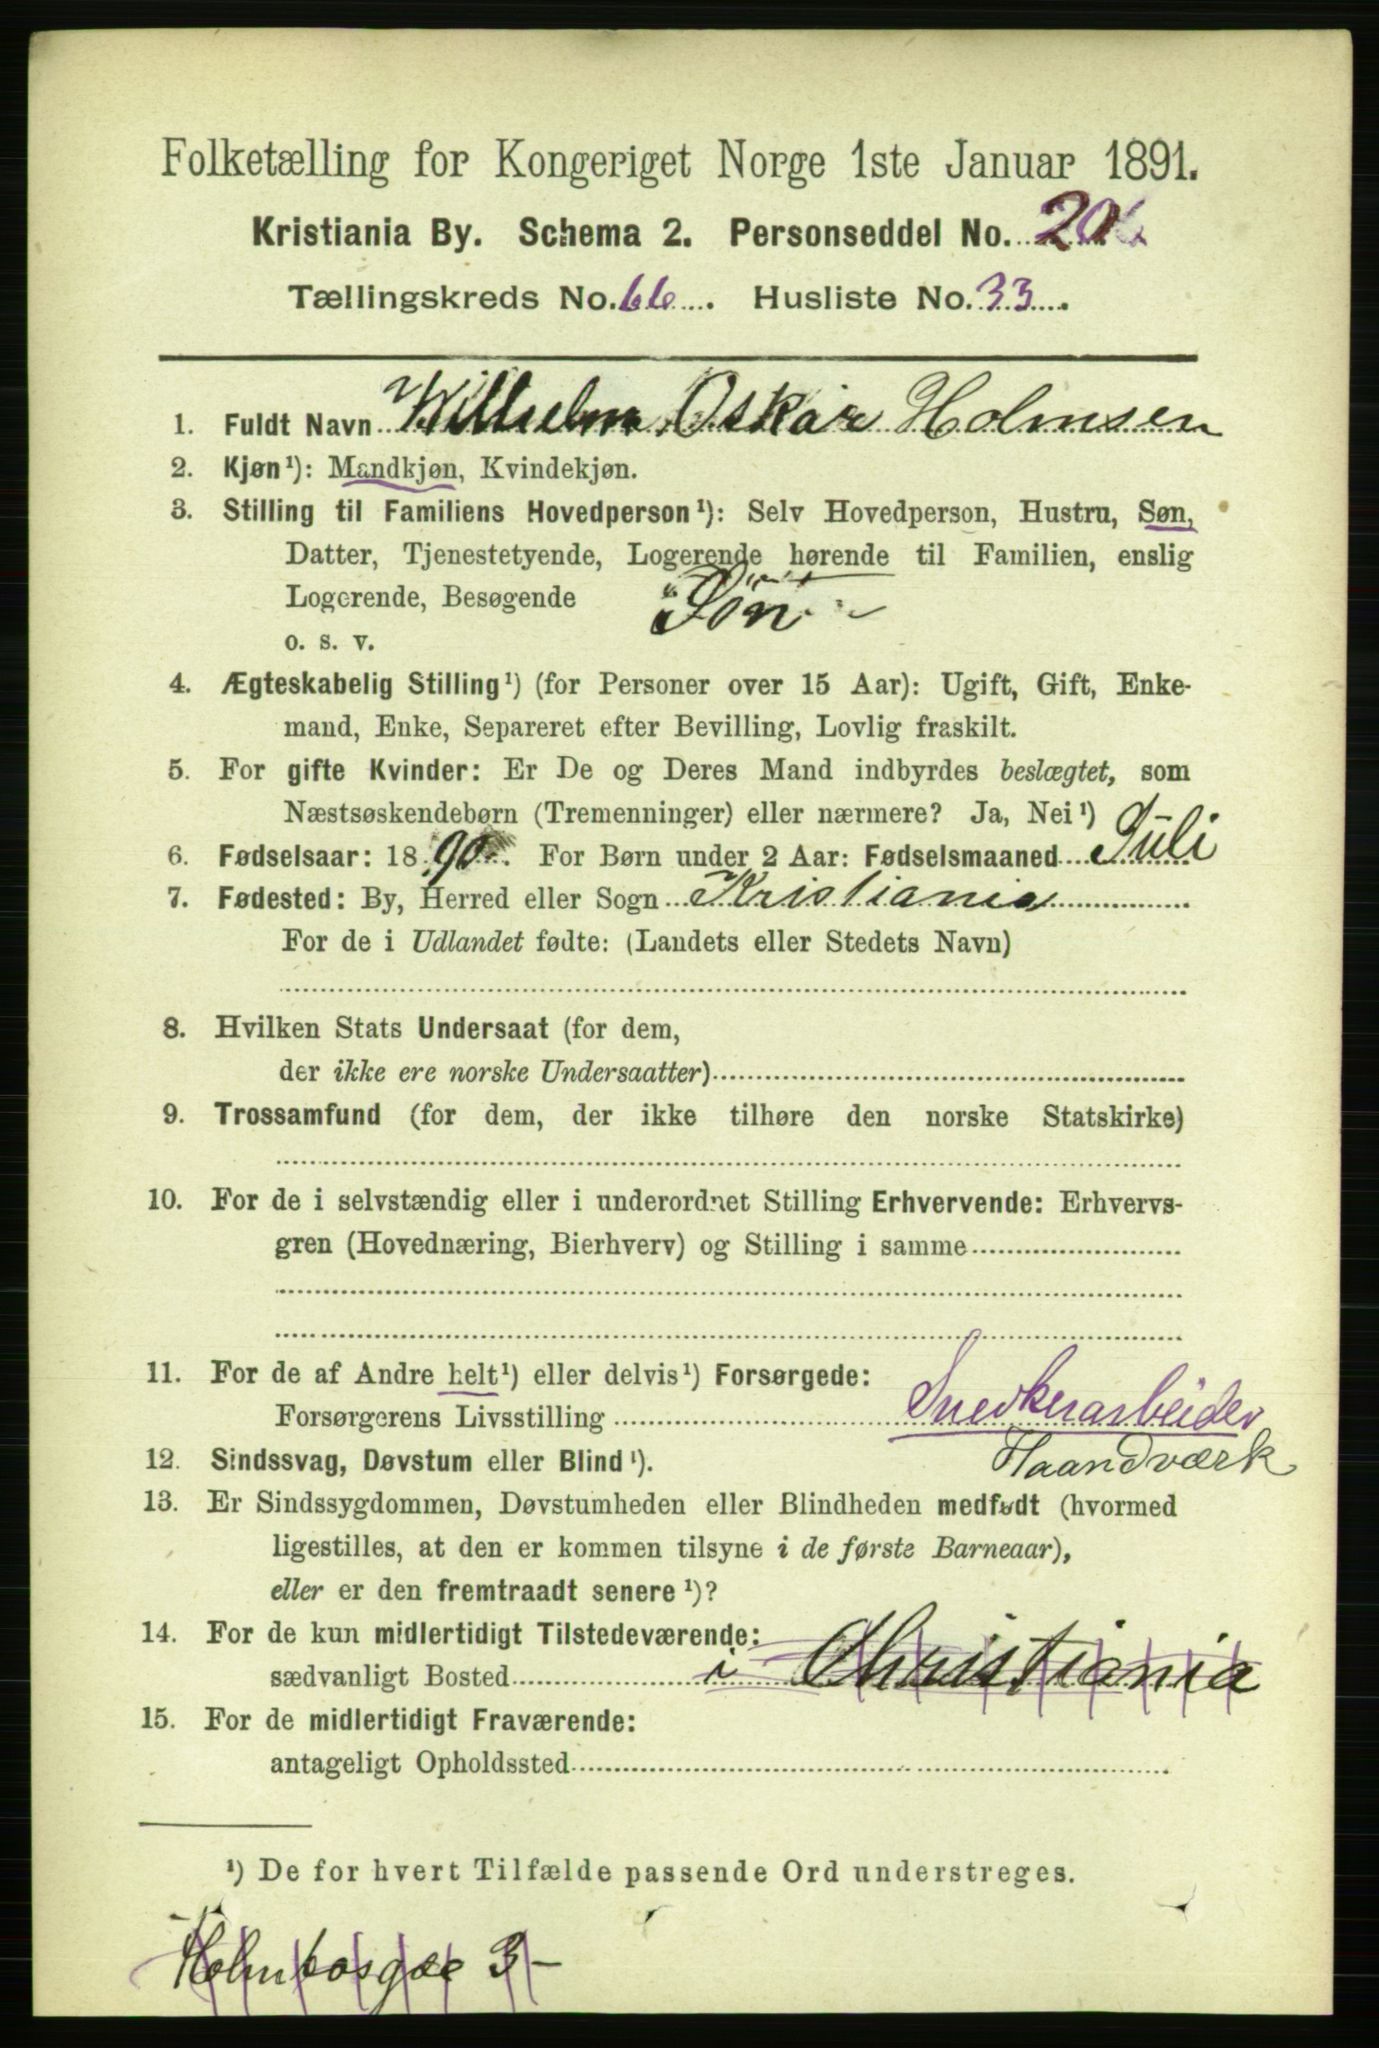 Folketælling for Kongeriget Norge 1ste Januar 1891.
Kristiania By. Schema 2. Personseddel No. 206
Tællingskreds No. 66. Husliste No. 33.
1. Fuldt Navn Wilhelm Oskar Holmsen
2. Kjøn¹): Mandkjøn, Kvindekjøn.
3. Stilling til Familiens Hovedperson¹): Selv Hovedperson, Hustru, Søn,
Datter, Tjenestetyende, Logerende hørende til Familien, enslig
Logerende, Besøgende Søn
o. s. v.
4. Ægteskabelig Stilling¹) (for Personer over 15 Aar): Ugift, Gift, Enke-
mand, Enke, Separeret efter Bevilling, Lovlig fraskilt.
5. For gifte Kvinder: Er De og Deres Mand indbyrdes beslægtet, som
Næstsøskendebørn (Tremenninger) eller nærmere? Ja, Nei¹)
6. Fødselsaar: 1890. For Børn under 2 Aar: Fødselsmaaned Juli
7. Fødested: By, Herred eller Sogn Kristiania
For de i Udlandet fødte: (Landets eller Stedets Navn)
8. Hvilken Stats Undersaat (for dem,
der ikke ere norske Undersaatter)
9. Trossamfund (for dem, der ikke tilhøre den norske Statskirke)
10. For de i selvstændig eller i underordnet Stilling Erhvervende: Erhvervs-
gren (Hovednæring, Bierhverv) og Stilling i samme
11. For de af Andre helt¹) eller delvis¹) Forsørgede:
Forsørgerens Livsstilling Snedkerarbeider
Haandværk
12. Sindssvag, Døvstum eller Blind¹).
13. Er Sindssygdommen, Døvstumheden eller Blindheden medfødt (hvormed
ligestilles, at den er kommen tilsyne i de første Barneaar),
eller er den fremtraadt senere¹)?
14. For de kun midlertidigt Tilstedeværende:
sædvanligt Bosted i Christiania
15. For de midlertidigt Fraværende:
antageligt Opholdssted
¹) De for hvert Tilfælde passende Ord understreges.
Holmbosgae 3